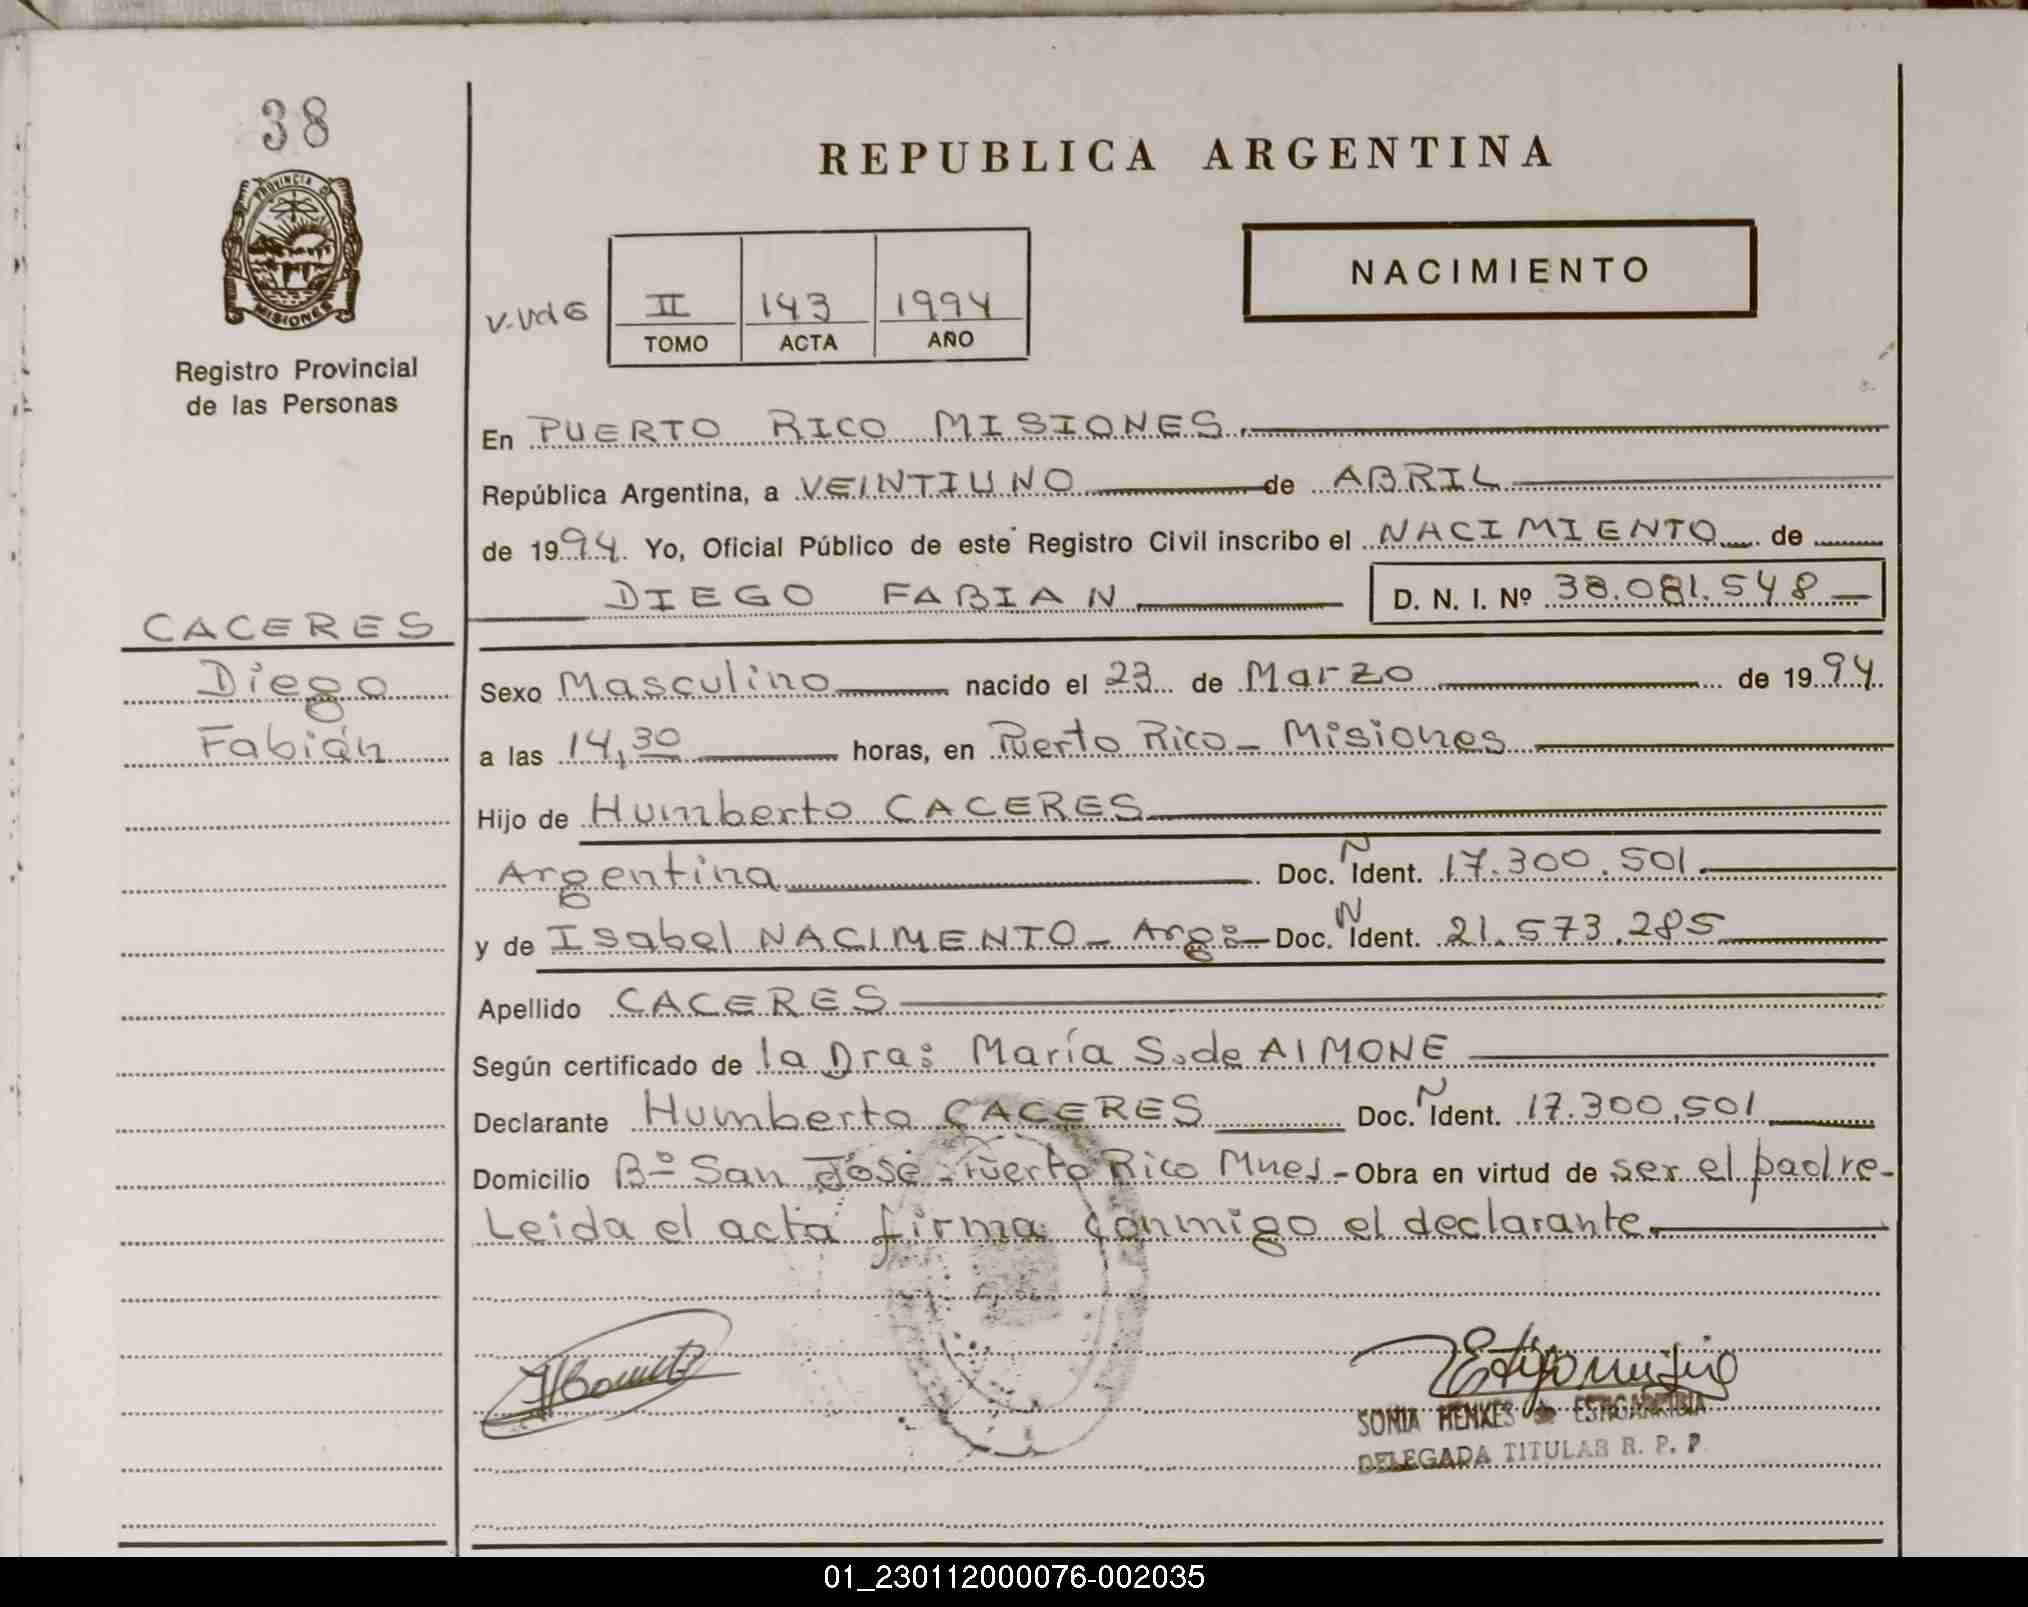 38
PROVINCIA DE
MISIONES
Registro Provincial
de las Personas
CACERES
Diego
Fabián
REPUBLICA ARGENTINA
NACIMIENTO
II 143 1994
TOMO ACTA AÑO
En PUERTO RICO MISIONES.
República Argentina, a VEINTIUNO de ABRIL
de 1994. Yo, Oficial Público de este Registro Civil inscribo el NACIMIENTO de
DIEGO FABIAN D. N. I. Nº 38.081.548
Sexo Masculino nacido el 23 de Marzo de 1994
a las 14,30 horas, en Puerto Rico - Misiones
Hijo de Humberto CACERES
Argentina Doc. Ñ Ident. 17.300.501.
y de Isabel NACIMENTO - Arg: Doc. N Ident. 21.573.285
Apellido CACERES
Según certificado de la Dra: María S. de AIMONE
Declarante Humberto CACERES Doc. Ñ Ident. 17.300.501
Domicilio Bº San José - Puerto Rico Mnes - Obra en virtud de ser el padre-
Leida el acta firma conmigo el declarante.
SONIA HENKES de ESTIGARRIBIA
DELEGADA TITULAR R. P. P.
01_230112000076-002035